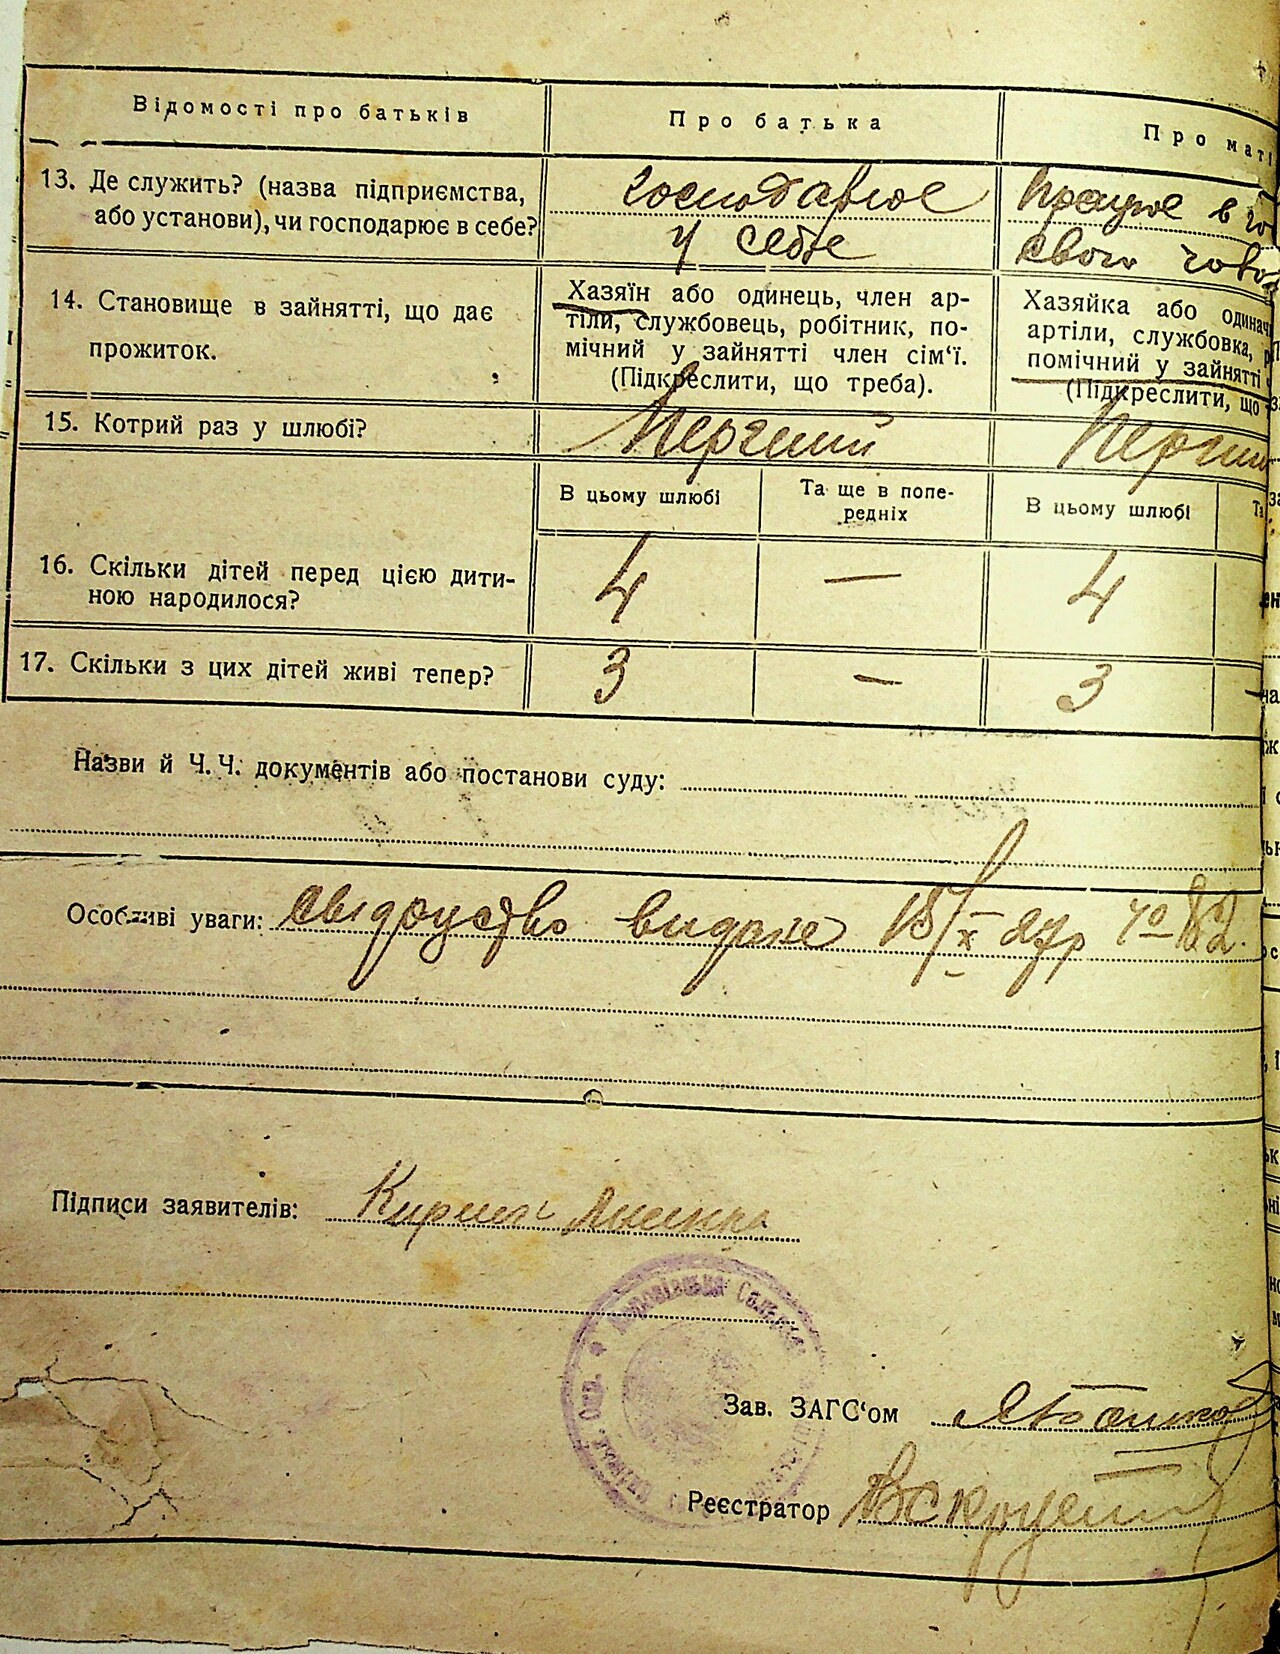 Відомості про батьків
Про батька
Про маті
13. Де служить? (назва підприємства,
або установи), чи господарює в себе?
господарює
у себе
Працює в го
свого чолов
14. Становище в зайнятті, що дає
прожиток.
Хазяїн або одинець, член ар-
тіли, службовець, робітник, по-
мічний у зайнятті член сім'ї.
(Підкреслити, що треба).
Хазяйка або одинач
артіли, службовка, р
помічний у зайнятті
(Підкреслити, що
15. Котрий раз у шлюбі?
Перший
Перший
В цьому шлюбі
Та ще в попе-
редніх
В цьому шлюбі
Та
16. Скільки дітей перед цією дити-
ною народилося?
4 — 4
17. Скільки з цих дітей живі тепер?
3 — 3 —
Назви й Ч. Ч. документів або постанови суду:
Особливі уваги: свідоцтво видане 18/X 27р
Підписи заявителів: Кирило
Зав. ЗАГС'ом
Реєстратор